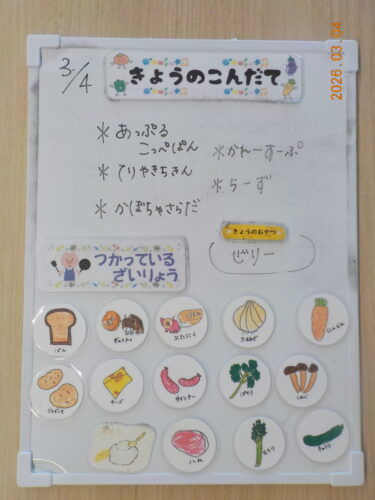 2026.03.04
3/4
きょうのこんだて
＊あっぷる
こっぺぱん
＊てりやきちきん
＊かぼちゃさらだ
＊かれーすーぷ
＊ちーず
きょうのおやつ
ぜりー
つかっている
ざいりょう
ぱん
ぎゅうにく
ぶたにく
たまねぎ
にんじん
じゃがいも
チーズ
ウインナー
ぱせり
しめじ
ハム
せろり
きゅうり